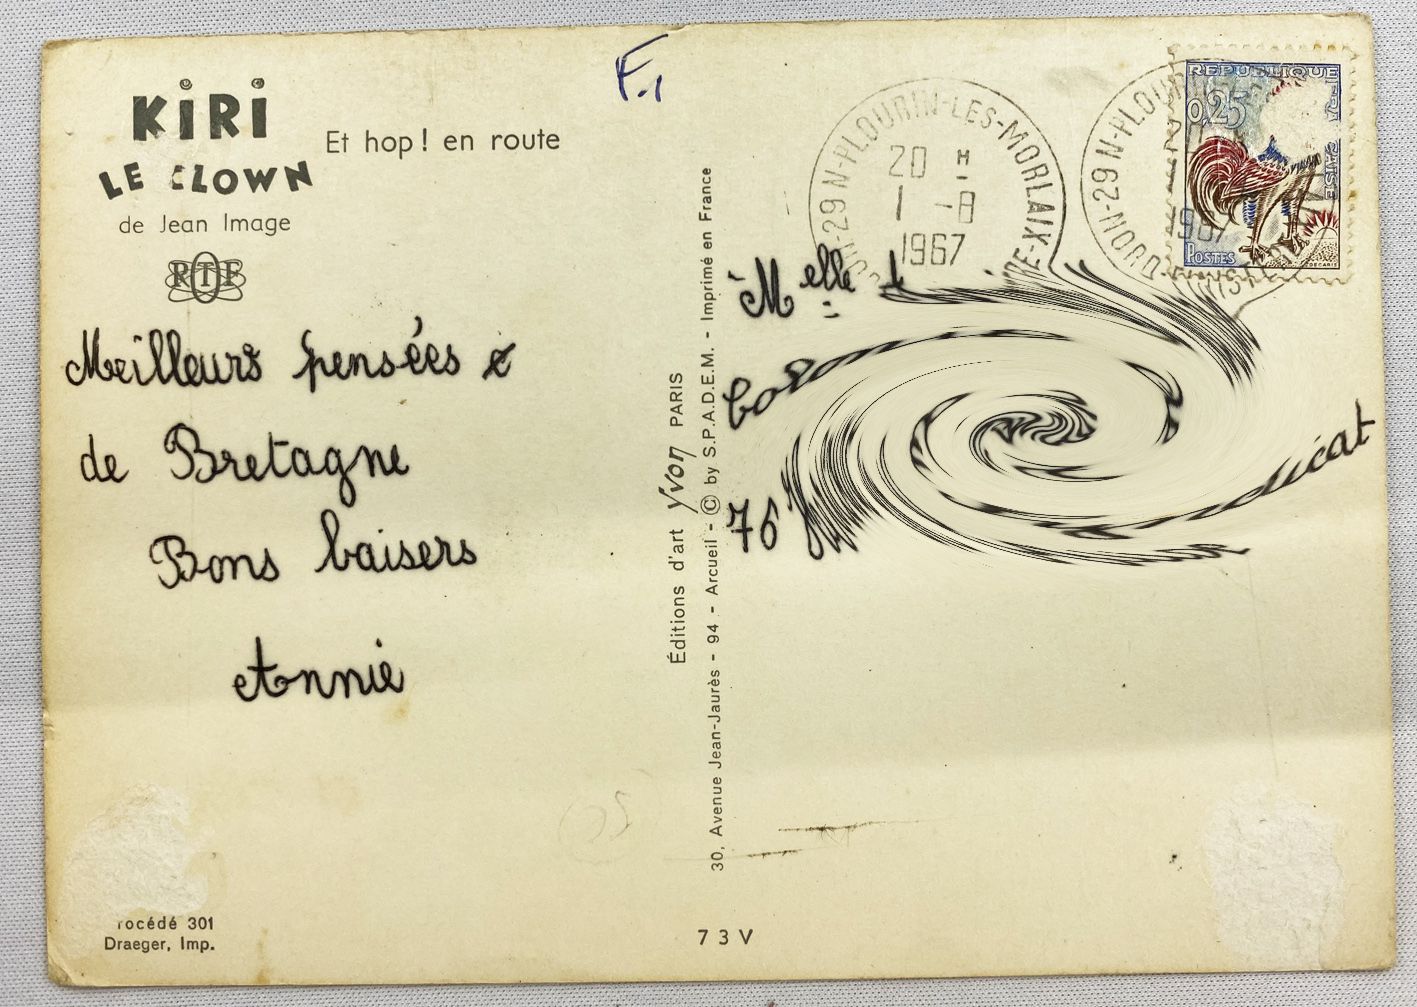 KiRi
LE CLOWN
de Jean Image
RTF
Et hop! en route
F.1
Meilleurs pensées
de Bretagne
Bons baisers
Annie
rocédé 301
Draeger, Imp.
Éditions d'art Yvon PARIS
30, Avenue Jean-Jaurès - 94 - Arcueil - © by S.P.A.D.E.M. - Imprimé en France
73V
29 N-PLOURIN-LES-MORLAIX
20 H
1 -8
1967
29 N-PLOU
NORD
1967
REPUBLIQUE
0,25
POSTES
DECARIS
Melle
76